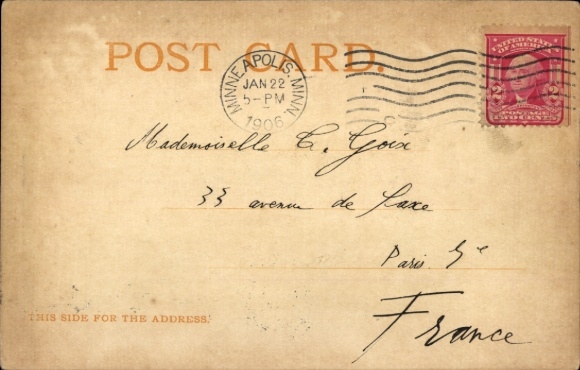 POST CARD.
MINNEAPOLIS, MINN.
JAN 22
5-PM
1906
UNITED STATES
OF AMERICA
2 2
POSTAGE
TWO CENTS
Mademoiselle C. Goix
33 avenue de Saxe
Paris
France
THIS SIDE FOR THE ADDRESS.